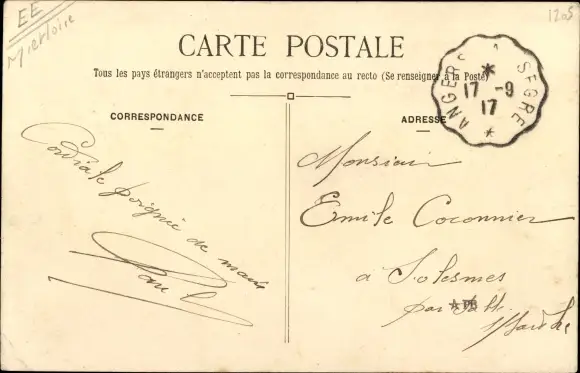 EE
1205
CARTE POSTALE
Tous les pays étrangers n'acceptent pas la correspondance au recto (Se renseigner à la Poste)
ANGERS A SEGRÉ
17 -9
17
CORRESPONDANCE
ADRESSE
Cordiale poignée de main
Paul
Monsieur
Emile Coconnier
a Solesmes
par Sablé
Sarthe